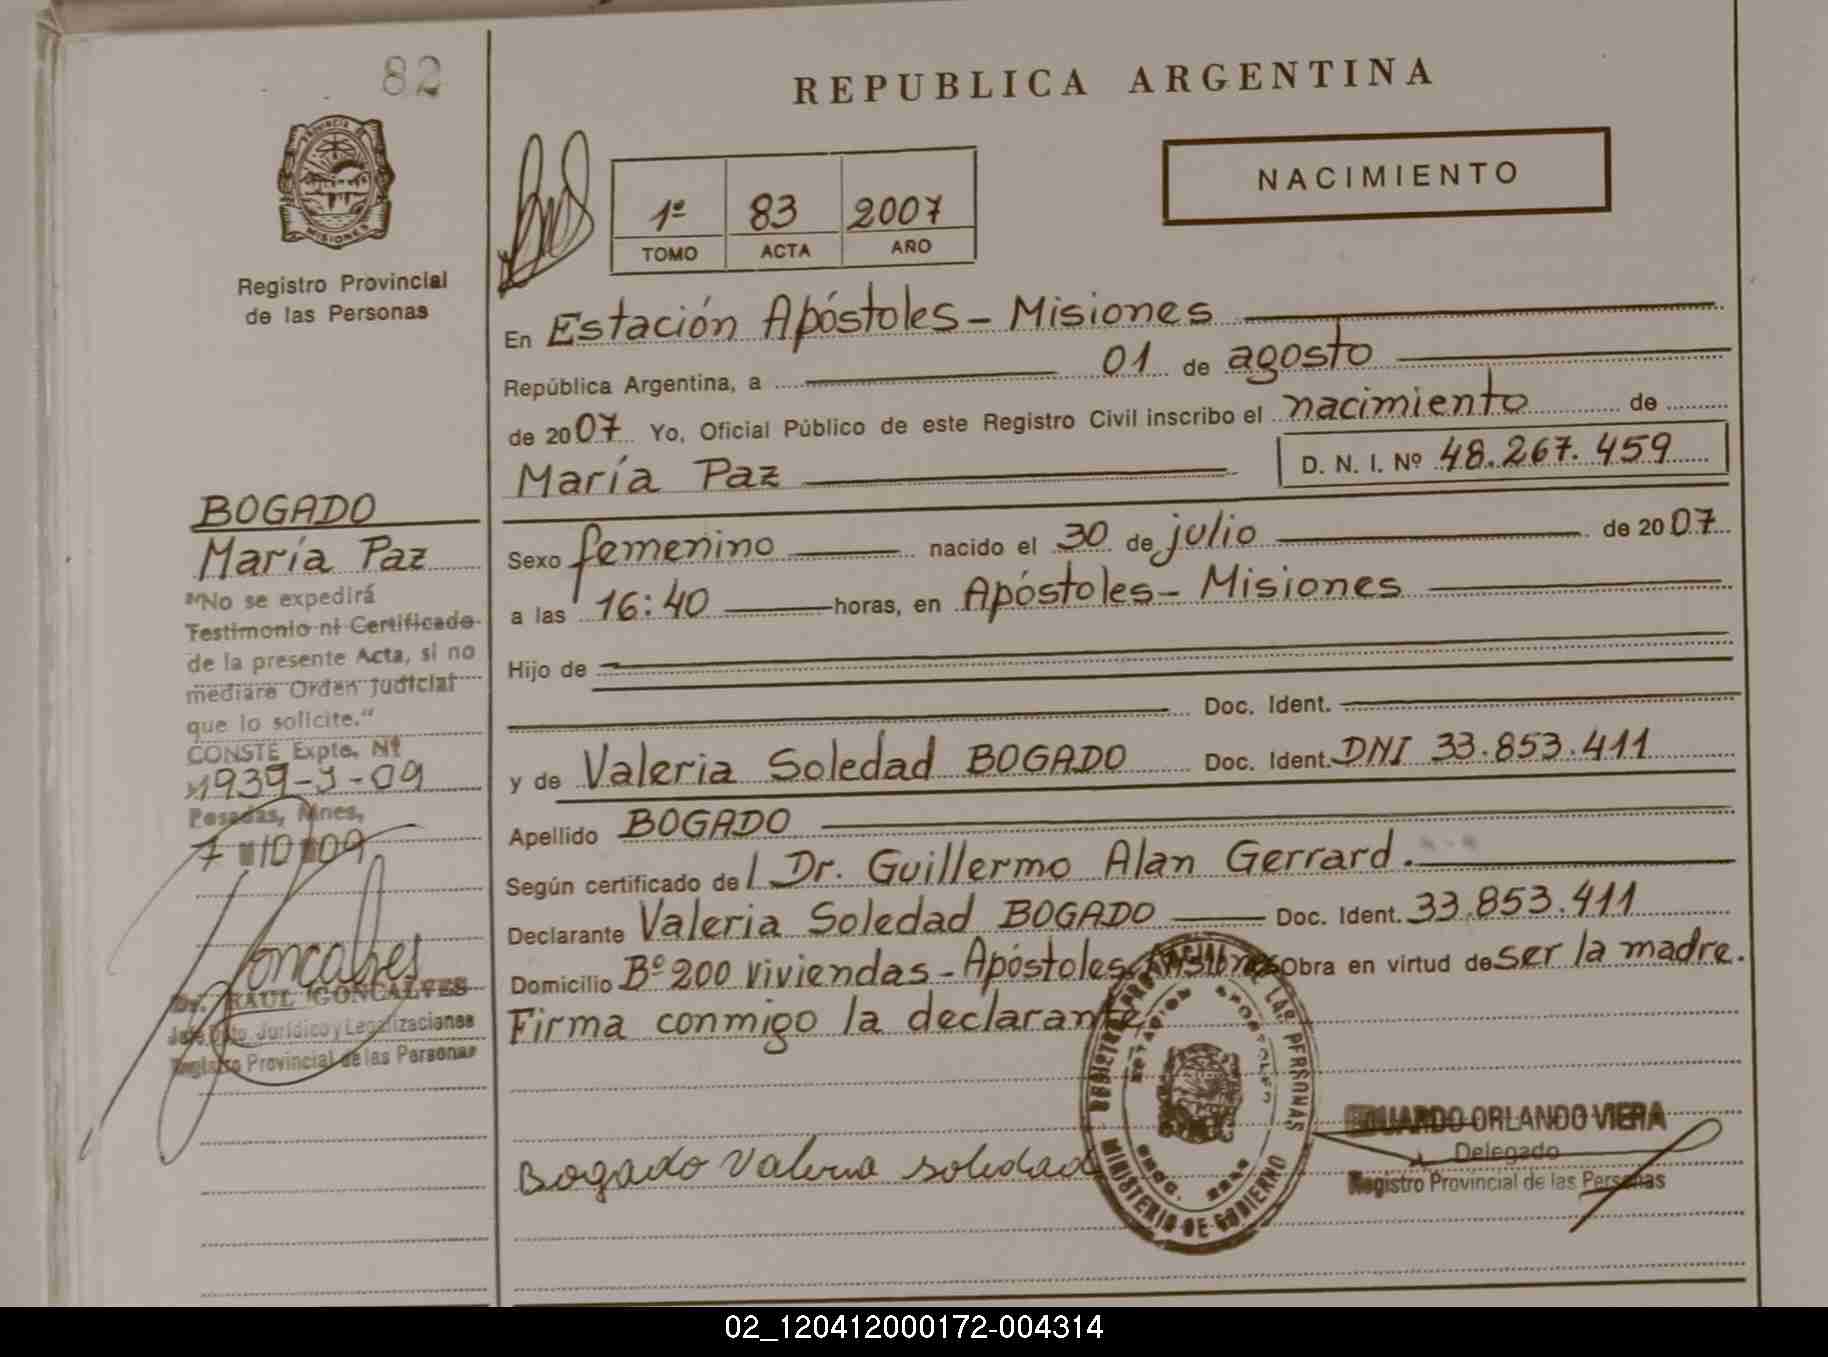 82
REPUBLICA ARGENTINA
NACIMIENTO
PROVINCIA DE
MISIONES
1º 83 2007
TOMO ACTA AÑO
Registro Provincial
de las Personas
En Estación Apóstoles - Misiones
República Argentina, a 01 de agosto
de 2007 Yo, Oficial Público de este Registro Civil inscribo el nacimiento de
María Paz D. N. I. Nº 48.267.459
Sexo femenino nacido el 30 de julio de 2007
a las 16:40 horas, en Apóstoles - Misiones
Hijo de
Doc. Ident.
y de Valeria Soledad BOGADO Doc. Ident. DNI 33.853.411
Apellido BOGADO
Según certificado del Dr. Guillermo Alan Gerrard.
Declarante Valeria Soledad BOGADO Doc. Ident. 33.853.411
Domicilio Bº 200 viviendas - Apóstoles Misiones Obra en virtud de ser la madre.
Firma conmigo la declarante
Bogado Valeria Soledad
REGISTRO PROVINCIAL DE LAS PERSONAS
ESTACION APOSTOLES
MINISTERIO DE GOBIERNO
EDUARDO ORLANDO VIERA
Delegado
Registro Provincial de las Personas
BOGADO
María Paz
"No se expedirá
Testimonio ni Certificado
de la presente Acta, si no
mediare Orden Judicial
que lo solicite."
CONSTE Expte. Nº
1939-J-09
Posadas, Mnes,
7 10 09
Goncalves
Dr. RAUL GONCALVES
Jefe Dpto. Jurídico y Legalizaciones
Registro Provincial de las Personas
02_120412000172-004314